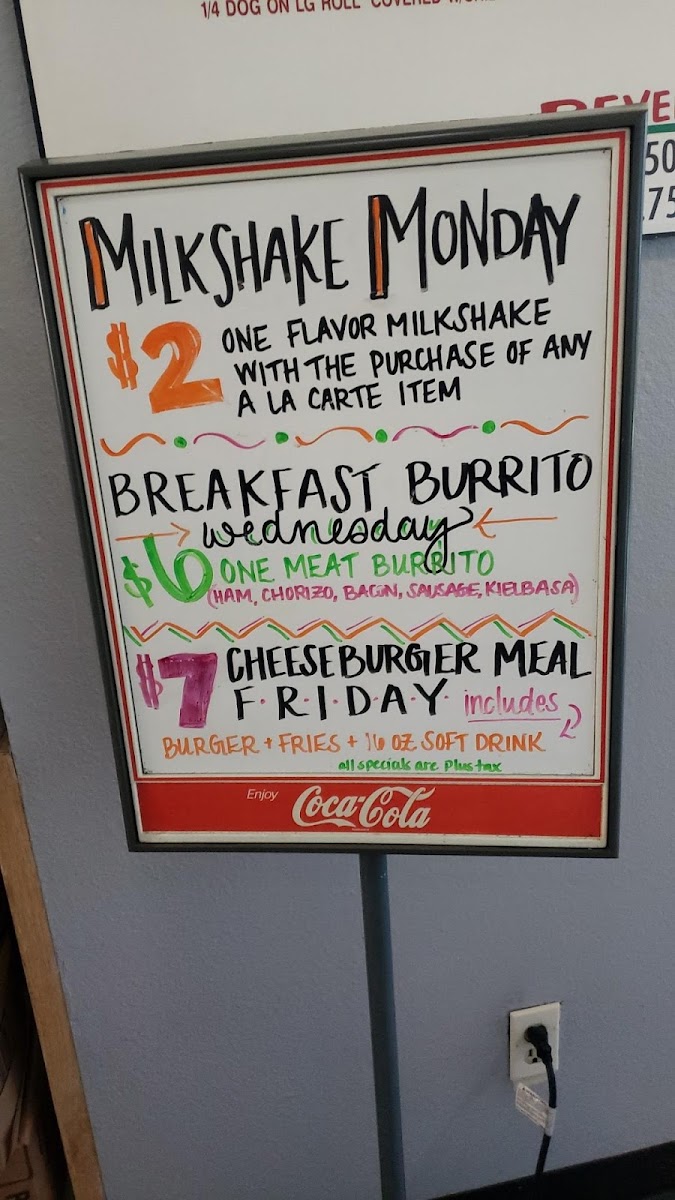 1/4 DOG ON LG ROLL COVERED
MILKSHAKE MONDAY
$2 ONE FLAVOR MILKSHAKE
WITH THE PURCHASE OF ANY
A LA CARTE ITEM
BREAKFAST BURRITO
wednesday
$6 ONE MEAT BURRITO
(HAM, CHORIZO, BACON, SAUSAGE, KIELBASA)
$7 CHEESEBURGER MEAL
F·R·I·D·A·Y· includes
BURGER + FRIES + 16 OZ SOFT DRINK
all specials are plus tax
Enjoy Coca-Cola